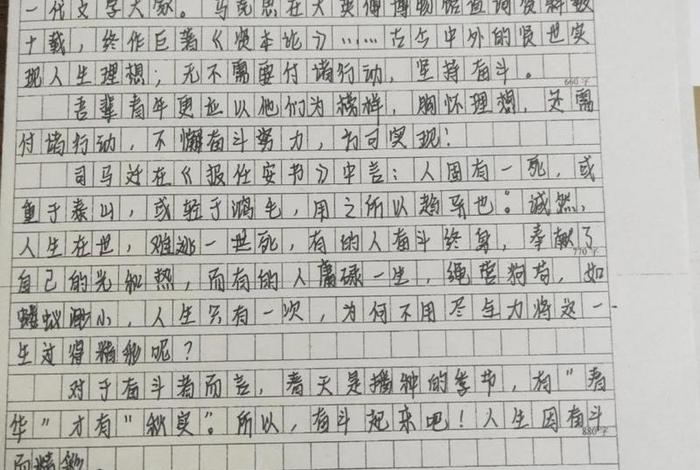 一代文学大家。马克思在大英博博物馆查阅资料数
十载，终作巨著《资本论》……古今中外的贤世实
现人生理想；无不需要付诸行动，坚持奋斗。
660字
吾辈青年更应以他们为榜样，胸怀理想，还需
付诸行动，不懈奋斗努力，方可实现！
司马迁在《报任安书》中言：人固有一死，或
重于泰山，或轻于鸿毛，用之所以趋异也。"诚然，
人生在世，难逃一世死，有的人奋斗终身，奉献了
770字
自己的光和热，而有的人庸碌一生，绳营狗苟，如
蝼蚁渺小，人生只有一次，为何不用尽全力将这一
生过得精彩呢？
对于奋斗者而言，春天是播种的季节，有"春
华"才有"秋实"。所以，奋斗起来吧！人生因奋斗
880字
而精彩。